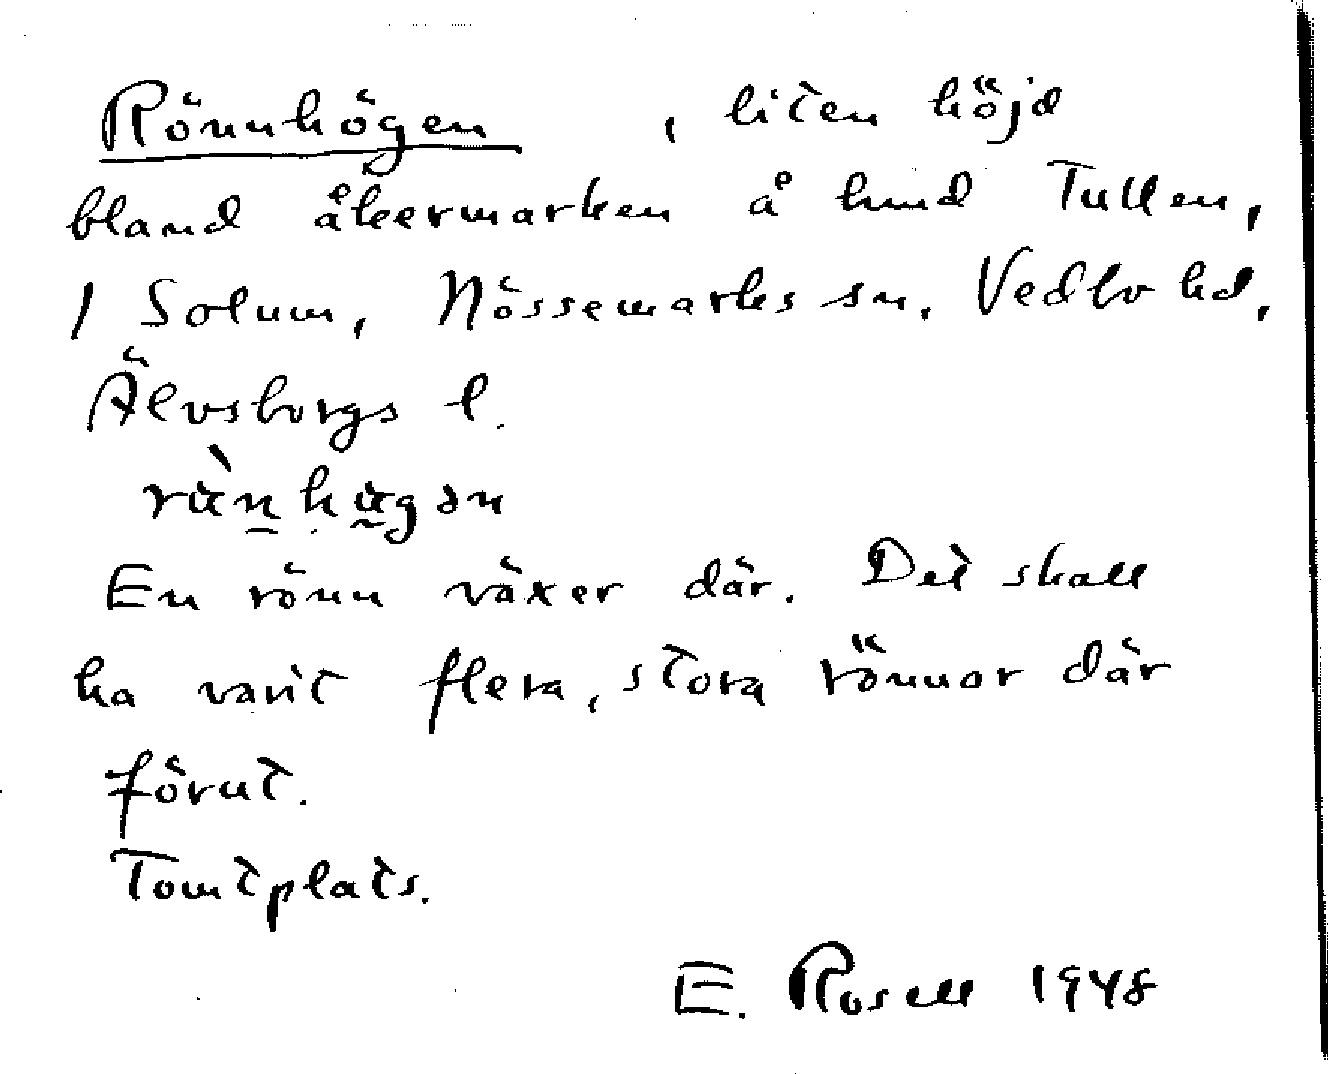 Rönnhögen , liten höjd
bland åkermarken å hmd Tullen,
1 Solum, Nössemarks sn. Vedbo hd.
Älvsborgs l.
En rönn växer där. Det skall
ha varit flera, stora rönnar där
förut.
Tomtplats.
E. Rosell 1948